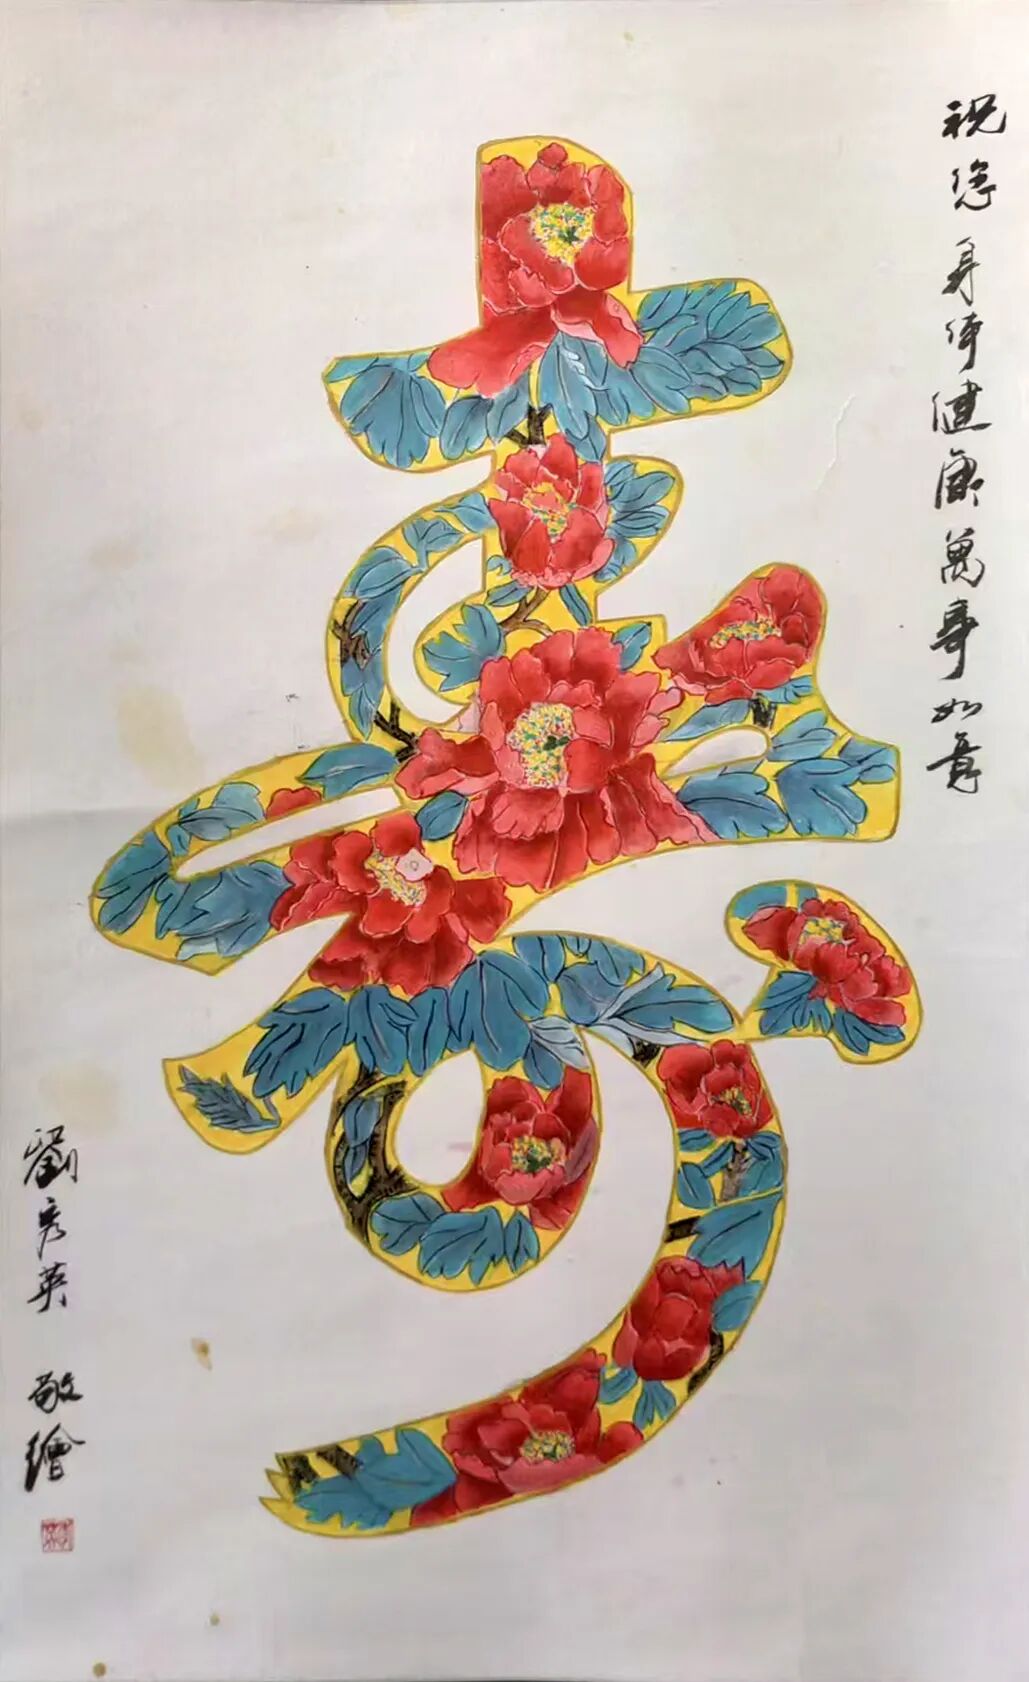 祝您身体健康萬事如意
壽
劉彦英 敬繪